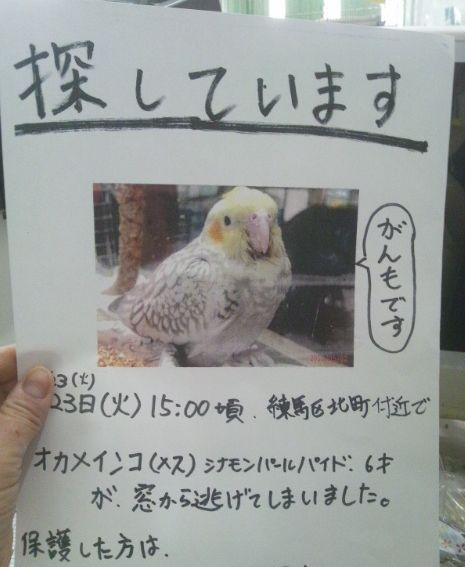 探しています
がんもです
23日(火) 15:00頃、練馬区北町付近で
オカメインコ(メス) シナモンパールパイド、6才
が、窓から逃げてしまいました。
保護した方は、